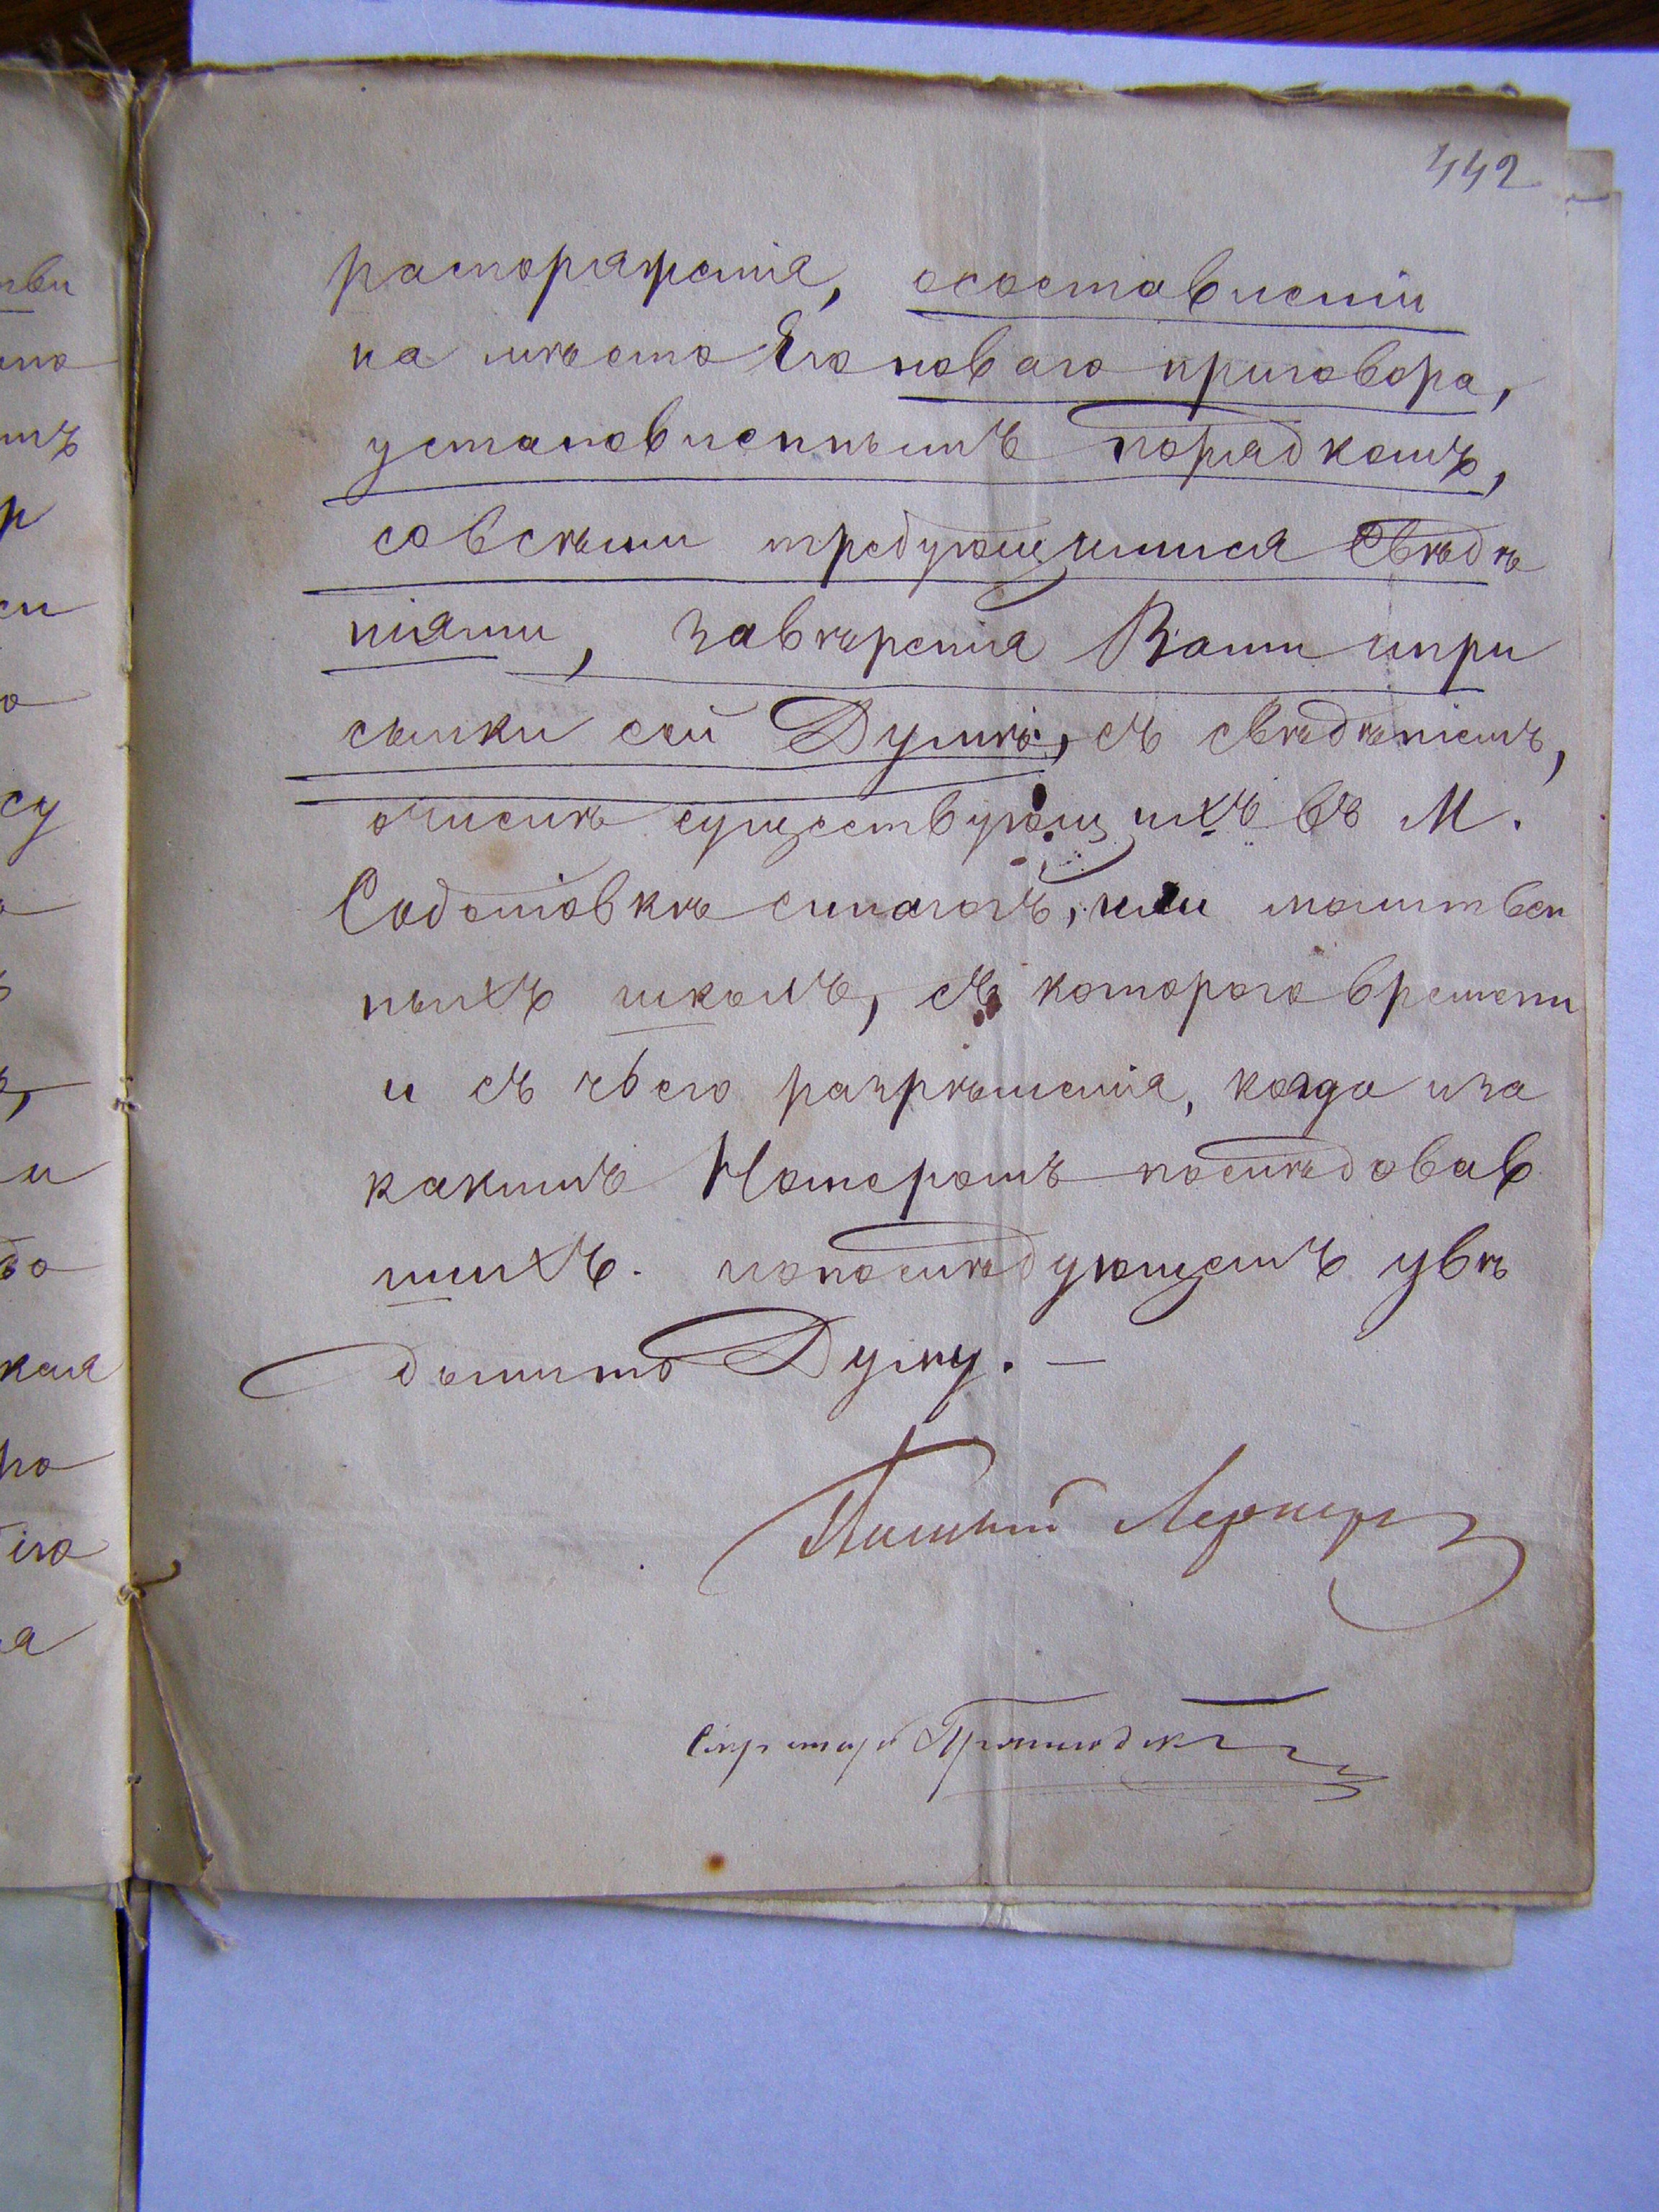 442
распоряженія, осоставленіи
на мѣсто Его новаго приговора,
установленнымъ порядкомъ,
совсѣми требующимися свѣдѣ
ніями, завѣренія Вами ипри
сылки сей Думѣ, съ свѣдѣніемъ,
очислѣ существующихъ въ М.
Соботовкѣ синагогъ, или молитвен
ныхъ школъ, съ котораго времени
и съ чьего разрѣшенія, когда иза
какимъ Номеромъ последовав
шихъ. ипопослѣдующемъ увѣ
домить Думу. —
Секретарь